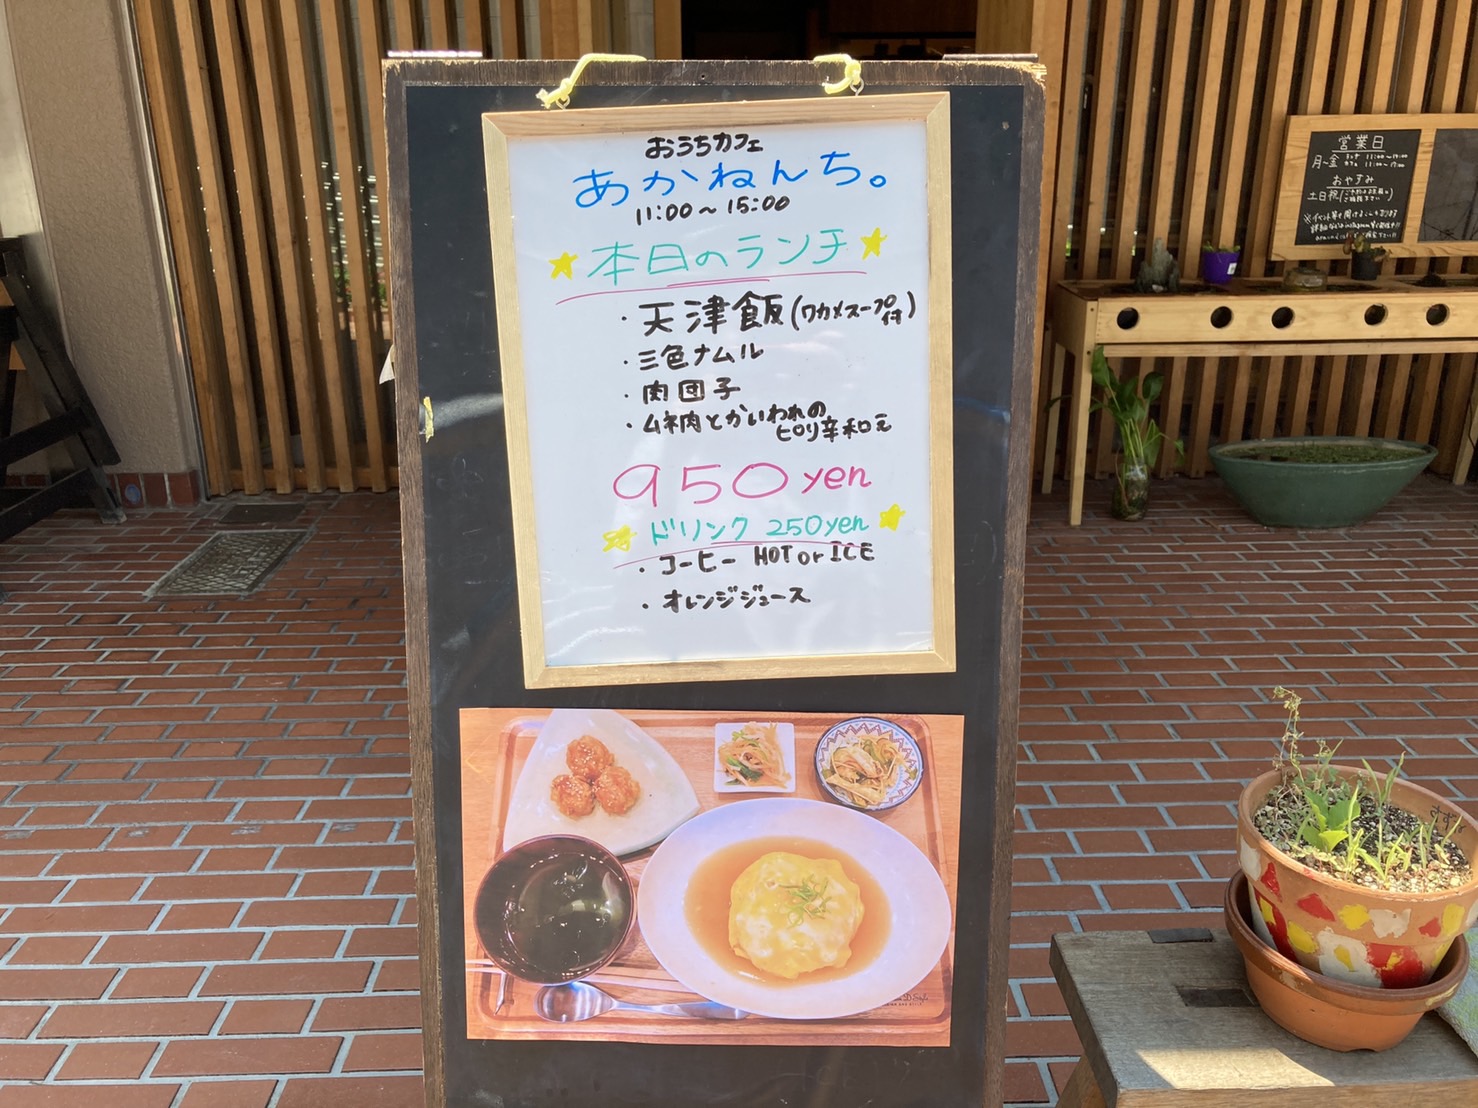 おうちカフェ
あかねんち。
11:00〜15:00
本日のランチ
・天津飯(ワカメスープ付)
・三色ナムル
・肉団子
・ムネ肉とかいわれの
ピリ辛和え
950yen
ドリンク 250yen
・コーヒー HOT or ICE
・オレンジジュース
営業日
月〜金
11:00〜
おやすみ
土日祝